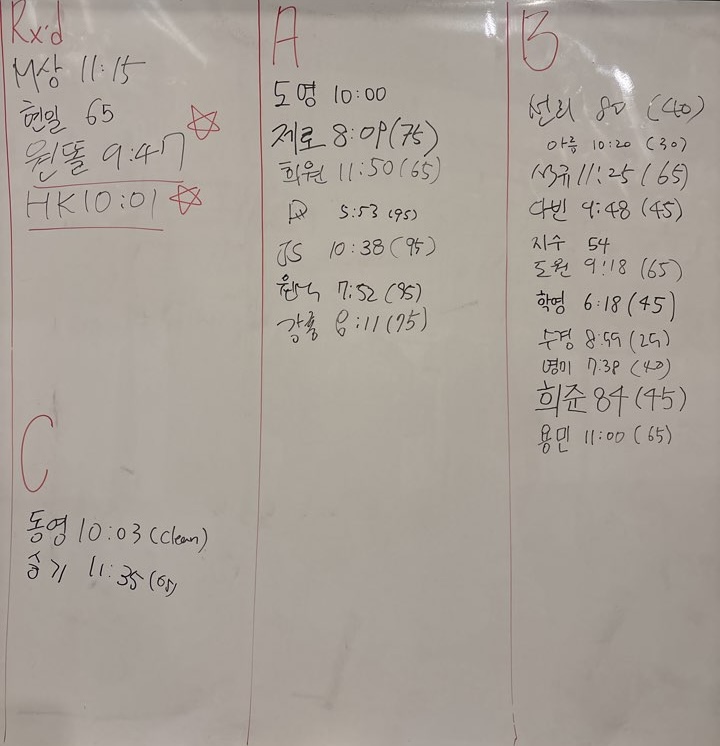 Rx'd
M상 11:15
현일 65
원똘 9:47
HK 10:01
C
동영 10:03 (clean)
승기 11:35 (65)
A
도영 10:00
제로 8:09 (75)
희원 11:50 (65)
5:53 (95)
JS 10:38 (95)
7:52 (95)
강흠 (95)
B
선리 80 (40)
아름 10:20 (30)
11:25 (65)
다빈 9:48 (45)
지수 54
도원 9:18 (65)
학영 6:18 (45)
수경 8:59 (25)
영미 7:38 (40)
희준 84 (45)
용민 11:00 (65)